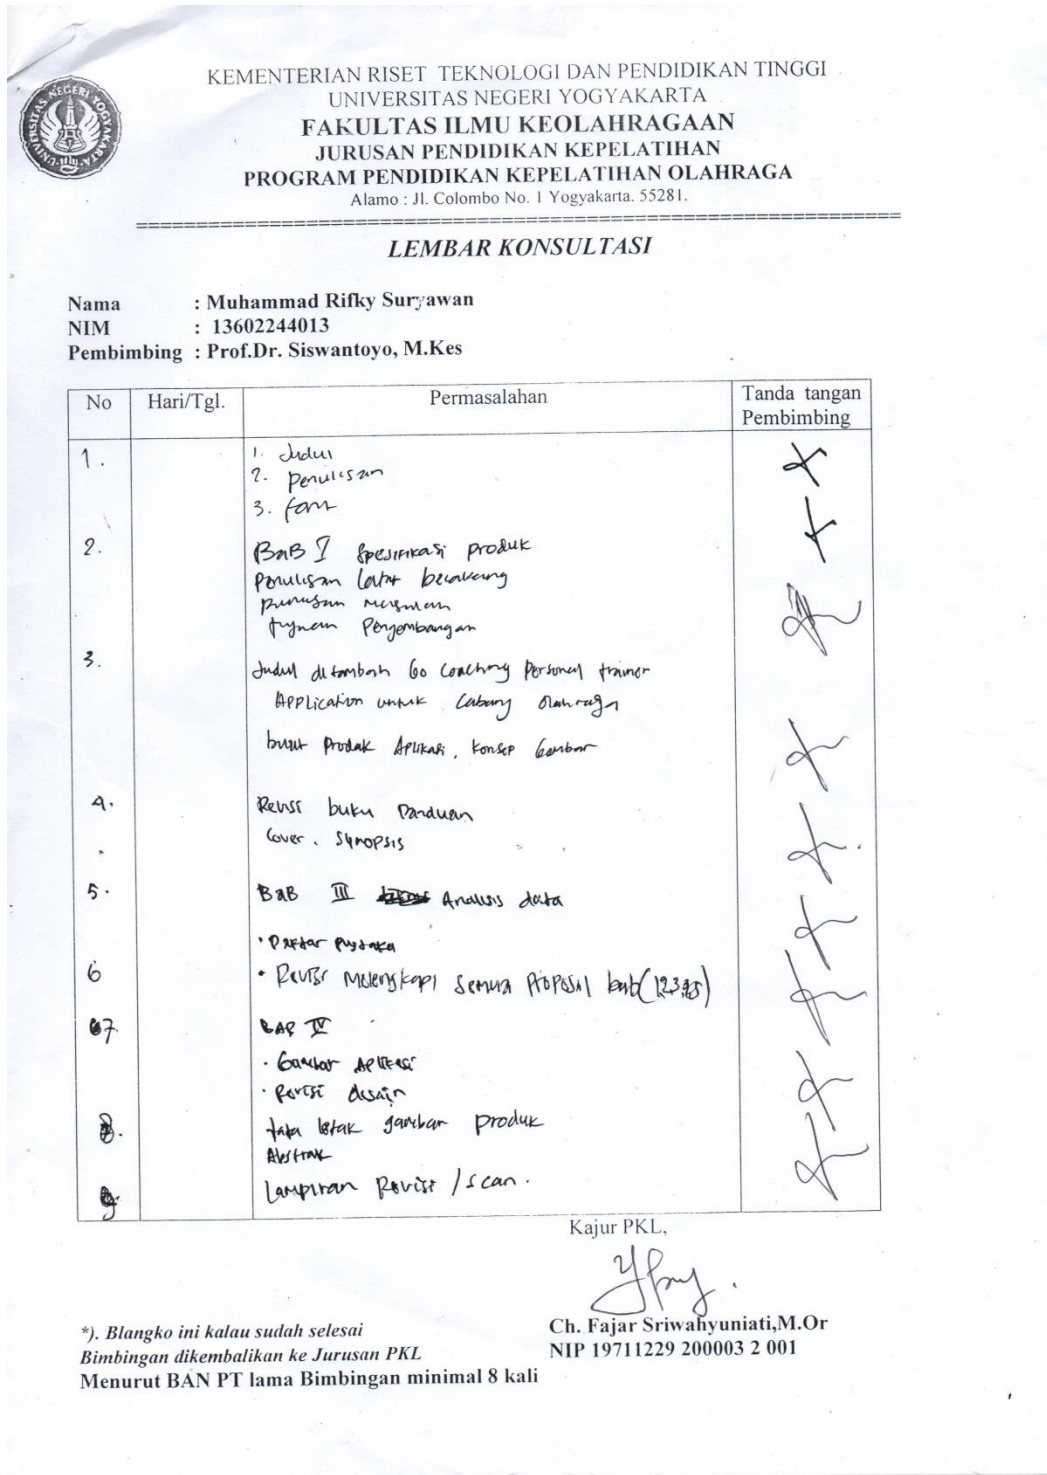 UNIVERSITAS NEGERI YOGYAKARTA
KEMENTERIAN RISET TEKNOLOGI DAN PENDIDIKAN TINGGI
UNIVERSITAS NEGERI YOGYAKARTA
FAKULTAS ILMU KEOLAHRAGAAN
JURUSAN PENDIDIKAN KEPELATIHAN
PROGRAM PENDIDIKAN KEPELATIHAN OLAHRAGA
Alamo : Jl. Colombo No. 1 Yogyakarta. 55281.
LEMBAR KONSULTASI
Nama : Muhammad Rifky Suryawan
NIM : 13602244013
Pembimbing : Prof.Dr. Siswantoyo, M.Kes
No Hari/Tgl. Permasalahan Tanda tangan
Pembimbing
1. 1. Judul
2. penulisan
3. font
2. BaB I Spesifikasi produk
penulisan latar belakang
tujuan Pengembangan
3. Judul ditambah Go Coaching Personal trainer
Application untuk Cabang Olahraga
buat Produk Aplikasi, Konsep Gambar
4. Revisi buku Panduan
Cover. Synopsis
5. BaB III Analisis data
• Daftar Pustaka
6 • Revisi Melengkapi Semua Proposal bab
7. BAB IV
• Gambar Aplikasi
• Revisi desain
8. tata letak gambar produk
Abstrak
9. Lampiran Revisi / scan.
Kajur PKL,
*). Blangko ini kalau sudah selesai
Bimbingan dikembalikan ke Jurusan PKL
Menurut BAN PT lama Bimbingan minimal 8 kali
Ch. Fajar Sriwahyuniati,M.Or
NIP 19711229 200003 2 001